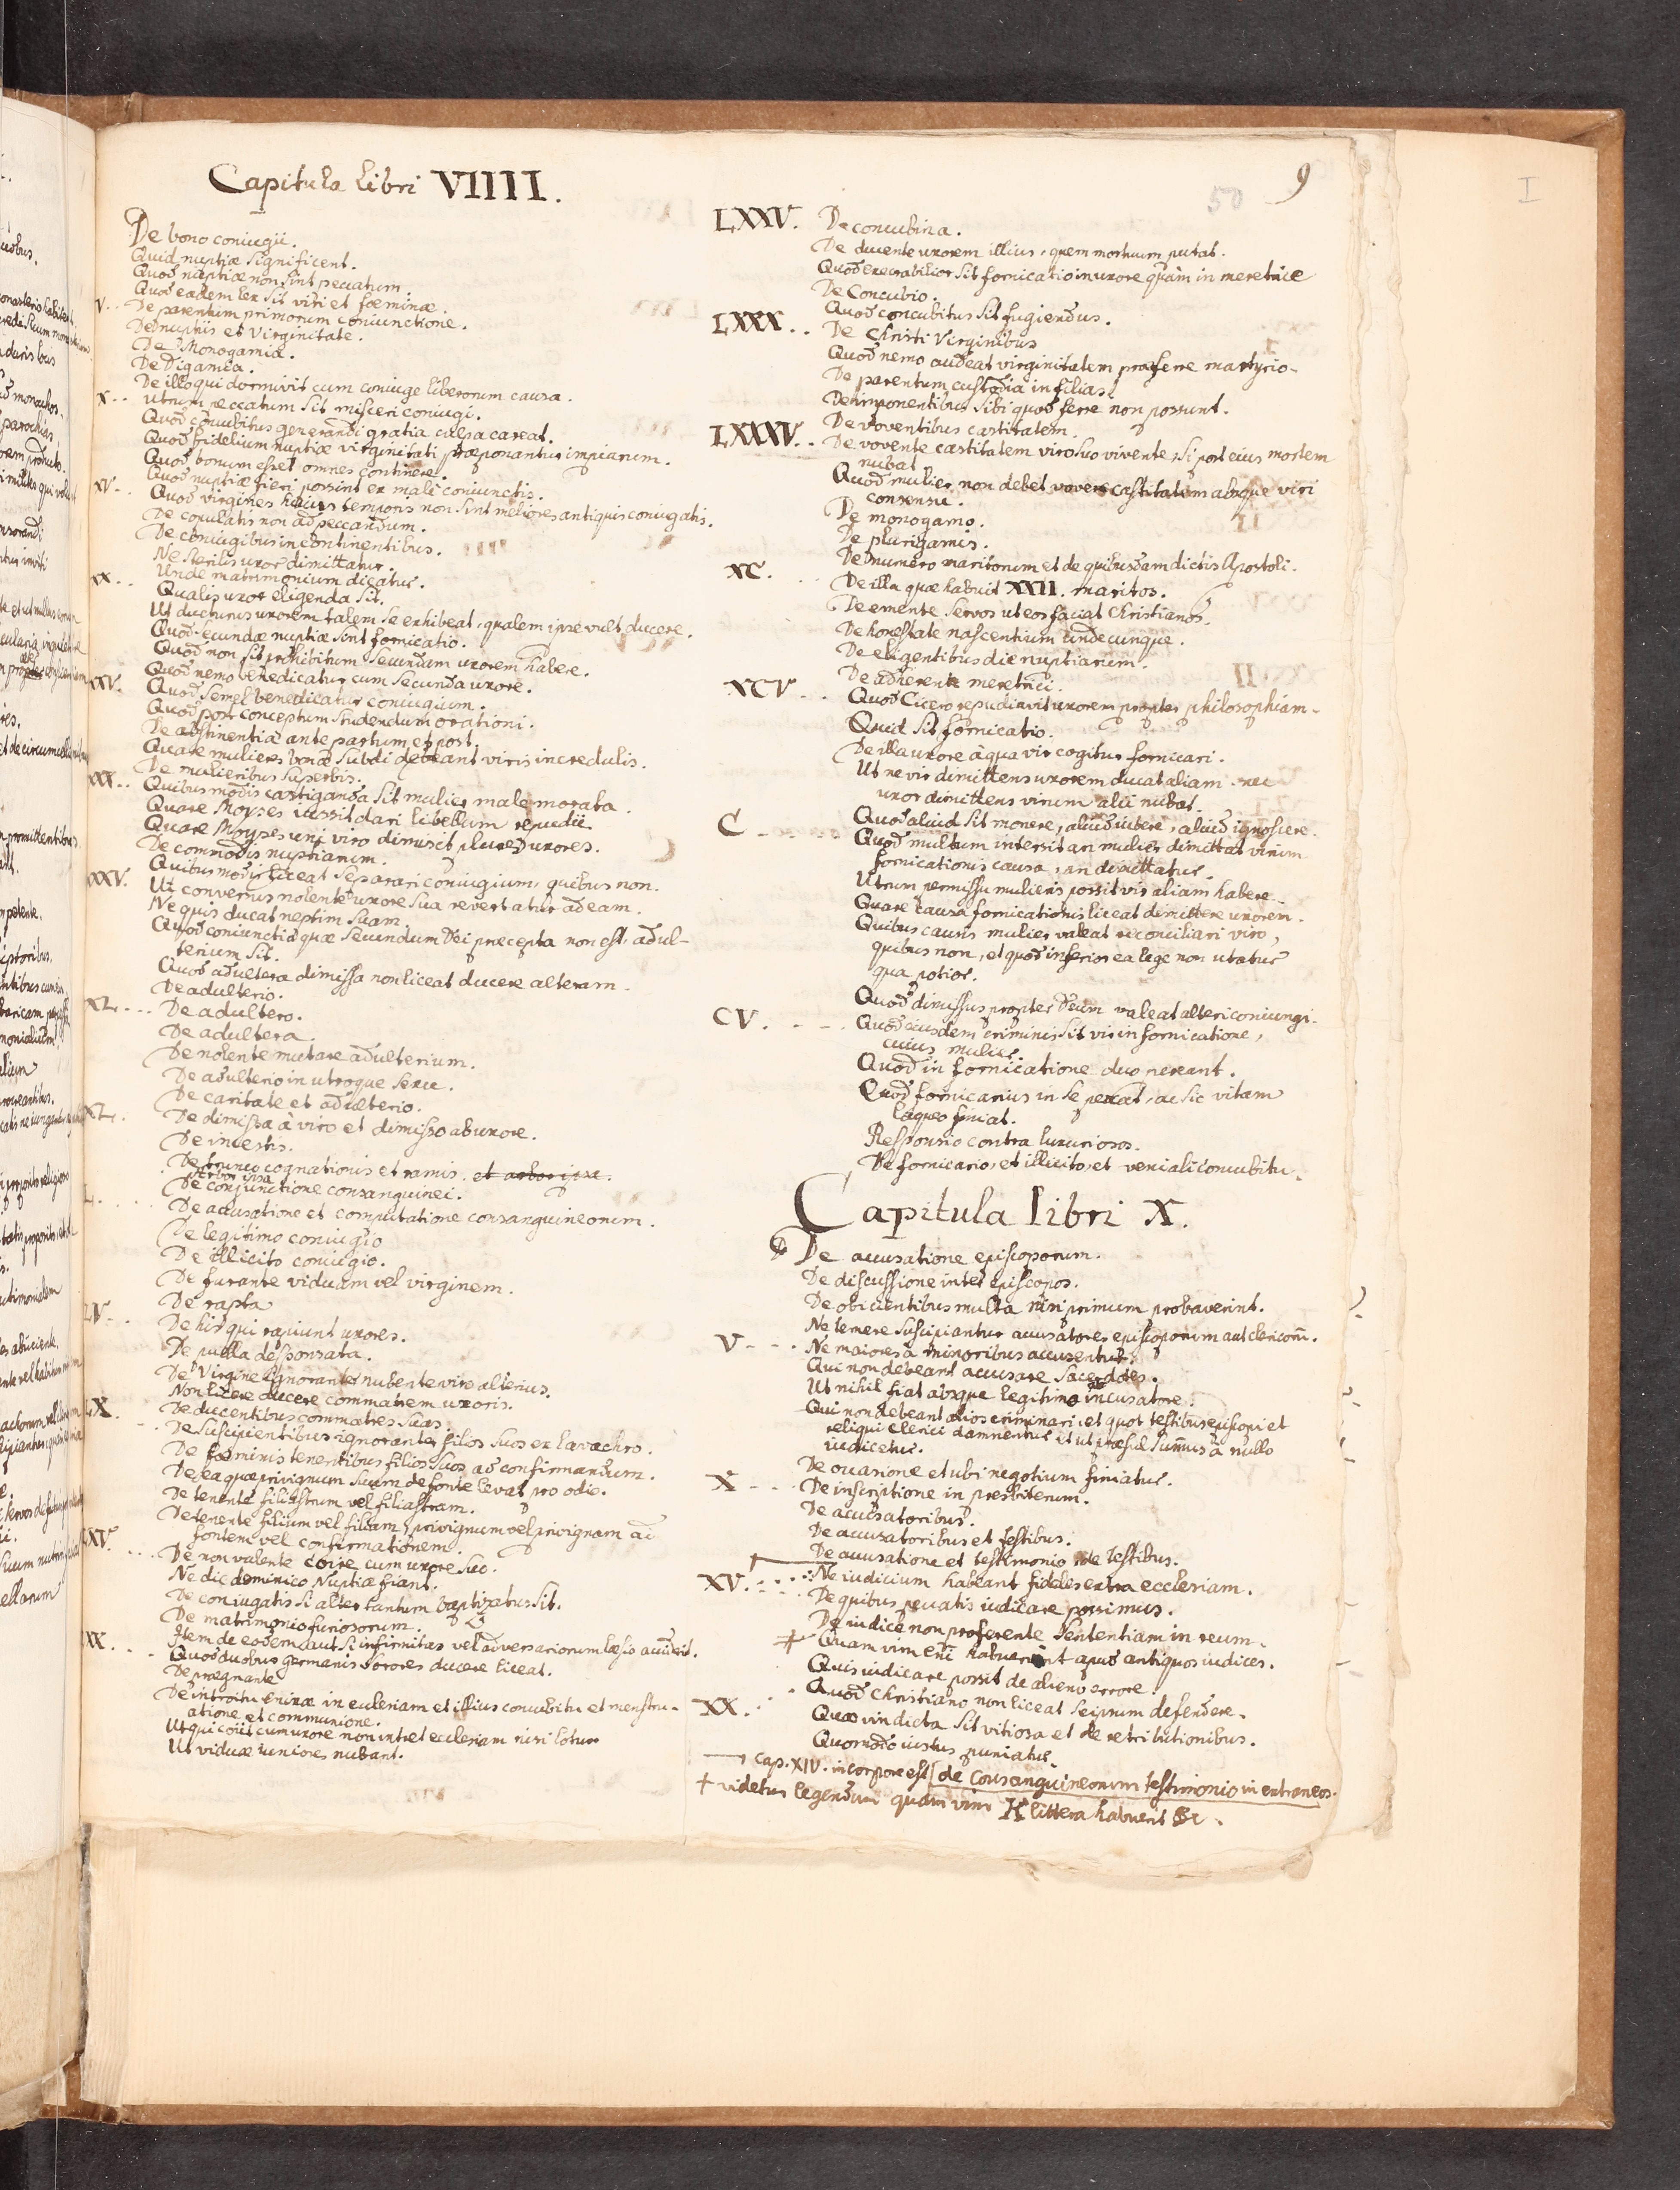 Capitula libri VIIII.
De bono coniugii.
Quid nuptiæ significent.
Quod nuptiæ non sint peccatum.
Quod eadem lex sit viri et foeminæ.
V. De parentum primorum coniunctione.
De nuptiis et Virginitate.
De Monogamia.
De Digamia.
De illo qui dormivit cum coniuge liberorum causa.
X. Utrum peccatum sit misceri coniugi.
Quod concubitus generandi gratia culpa careat.
Quod fidelium nuptiæ virginitati præponantur impiarum.
Quod bonum esset omnes continere.
Quod nuptiæ fieri possint ex male coniunctis.
XV. Quod virgines huius temporis non sint meliores antiquis coniugatis.
De copulatis non ad peccandum.
De coniugibus incontinentibus.
Ne sterilis uxor dimittatur.
Unde matrimonium dicatur.
XX. Qualis uxor eligenda sit.
Ut ducturus uxorem talem se exhibeat, qualem ipse vult ducere.
Quod secundæ nuptiæ sint fornicatio.
Quod non sit prohibitum secundam uxorem habere.
Quod nemo benedicatur cum secunda uxore.
XXV. Quod semel benedicatur coniugium.
Quod post conceptum studendum orationi.
De abstinentia ante partum et post.
Quare mulieres bonæ subdi debeant viris incredulis.
De mulieribus superbis.
XXX. Quibus modis castiganda sit mulier male morata.
Quare Moyses iussit dari libellum repudii.
Quare Moyses uni viro dimisit plures uxores.
De commodis nuptiarum.
Quibus modis liceat separari coniugium, quibus non.
XXXV. Ut conversus nolente uxore sua revertatur ad eam.
Ne quis ducat neptim suam.
Quod coniunctio quæ secundum Dei precepta non est, adul-
terium sit.
Quod adultera dimissa non liceat ducere alteram.
De adulterio.
XL. De adultero.
De adultera.
De nolente mutare adulterium.
De adulterio in utroque sexu.
De caritate et adulterio.
XL. De dimissa à viro et dimisso ab uxore.
De incestis.
De trunco cognationis et ramis. et arbor ipsa.
Arbor ipsa
L. De conjunctione consanguinei.
De accusatione et computatione consanguineorum.
De legitimo coniugio
De illicito coniugio.
De furante viduam vel virginem.
De rapta
LV. De his qui rapiunt uxores.
De puella desponsata.
De Virgine ignoranter nubente viro alterius.
Non licere ducere commatrem uxoris.
LX. De ducentibus commatres suas.
De suscipientibus ignoranter filios suos ex lavachro.
De foeminis tenentibus filios suos ad confirmandum.
De ea quæ privignum suum de fonte levat pro odio.
De tenente filiastrum vel filiastram.
De tenente filium vel filiam, privignum vel privignam ad
fontem vel confirmationem.
LXV. De non valente coire cum uxore sua.
Ne die dominico Nuptiæ fiant.
De coniugatis si alter tantum baptizatus sit.
De matrimonio furiosorum.
Item de eodem aut si infirmitas vel adversariorum læsio acciderit.
LXX. Quod duobus germanis sorores ducere liceat.
De prægnante
De introitu enixæ in ecclesiam et illius concubitu et menstru-
atione et communione.
Ut qui coiit cum uxore non intret ecclesiam nisi lotus
Ut viduæ iuniores nubant.
50 9
LXXV. De concubina.
De ducente uxorem illius, quem mortuum putat.
Quod execrabilior sit fornicatio in uxore quàm in meretrice
De Concubio.
Quod concubitus sit fugiendus.
LXXX. De Christi Virginibus
Quod nemo audeat virginitatem præferre martyrio.
De parentum custodia in filias.
De imponentibus sibi quod ferre non possunt.
De voventibus castitatem.
LXXXV. De vovente castitatem viro suo vivente, si post eius mortem
nubat
Quod mulier non debet vovere castitatem absque viri
consensu.
De monogamo.
De plurigamis.
De numero maritorum et de quibusdam dictis Apostoli.
XC. De illa quæ habuit XXII. maritos.
De emente servos ut eos faciat Christianos.
De honestate nascentium undecunque.
De eligentibus die nuptiarum.
De adherente meretrici.
XCV. Quod Cicero repudiavit uxorem propter philosophiam.
Quid sit fornicatio.
De illa uxore à qua vir cogitur fornicari.
Ut ne vir dimittens uxorem ducat aliam nec
uxor dimittens virum alii nubat.
C Quod aliud sit monere, aliud iubere, aliud ignoscere.
Quod multum intersit an mulier dimittat virum
fornicationis causa, an dimittatur.
Utrum permissu mulieris possit vir aliam habere.
Quare causa fornicationis liceat dimittere uxorem.
Quibus causis mulier valeat reconciliari viro,
quibus non, et quod inferior ea lege non utatur
qua potior.
Quod dimissus propter Deum valeat alteri coniungi.
CV. Quod eiusdem criminis sit vir in fornicatione,
cuius mulier.
Quod in fornicatione duo pereant.
Quod fornicarius in se peccat, ac sic vitam
laqueo finiat.
Responsio contra luxuriosos.
De fornicario, et illicito, et veniali concubitu.
Capitula libri X.
De accusatione episcoporum.
De discussione inter episcopos.
De obicientibus multa nisi primum probaverint.
Ne temere suscipiantur accusatores episcoporum aut clericorum.
V Ne maiores a minoribus accusentur.
Qui non debeant accusare sacerdotes.
Ut nihil fiat absque legitimo incusatore.
Qui non debeant alios criminari, et quot testibus episcopi et
reliqui Clerici damnentur et ut præsul summus à nullo
iudicetur.
De occasione et ubi negotium finiatur.
X De inscriptione in presbiterum.
De accusatoribus.
De accusatoribus et testibus.
De accusatione et testimonio de testibus.
XV. Ne iudicium habeant fideles extra ecclesiam.
De quibus peccatis iudicare possimus.
De iudice non proferente sententiam in reum.
Quam vim eni habuerint apud antiquos iudices.
Quis iudicare possit de alieno errore.
Quod Christiano non liceat seipsum defendere.
XX. Quæ vindicta sit vitiosa et de retributionibus.
Quomodo iustus puniatur.
cap. XIV. in corpore est [de consanguineorum testimonio in extraneos.
+ videtur legendum quam vim K littera habuerit &c.
I